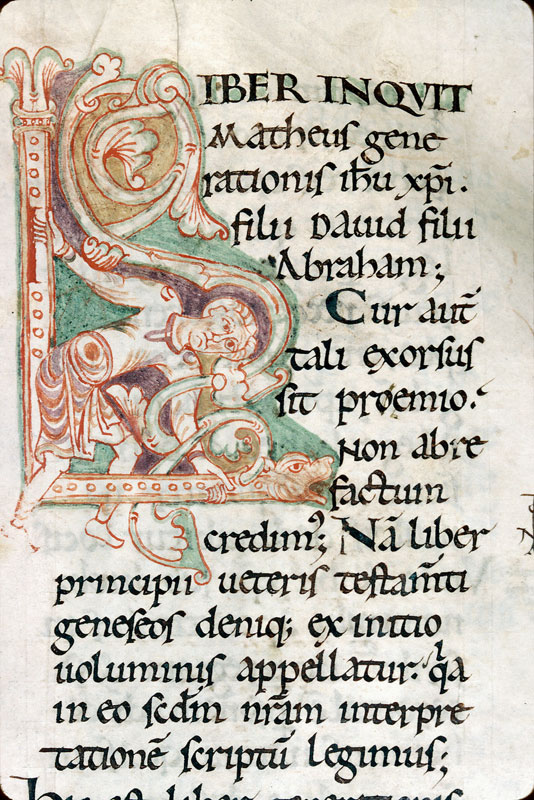 LIBER INQVIT
Matheus gene
rationis ihu xpi.
filii Dauid filii
Abraham;
Cur aut̄
tali exorsus
sit proemio.
Non abre
factum
credim᷒; Nā liber
principii ueteris testam̄ti
geneseos deniq; ex initio
uoluminis appellatur. qͥa
in eo scd̄m nr̄am interpre
tationē scriptū legimus;